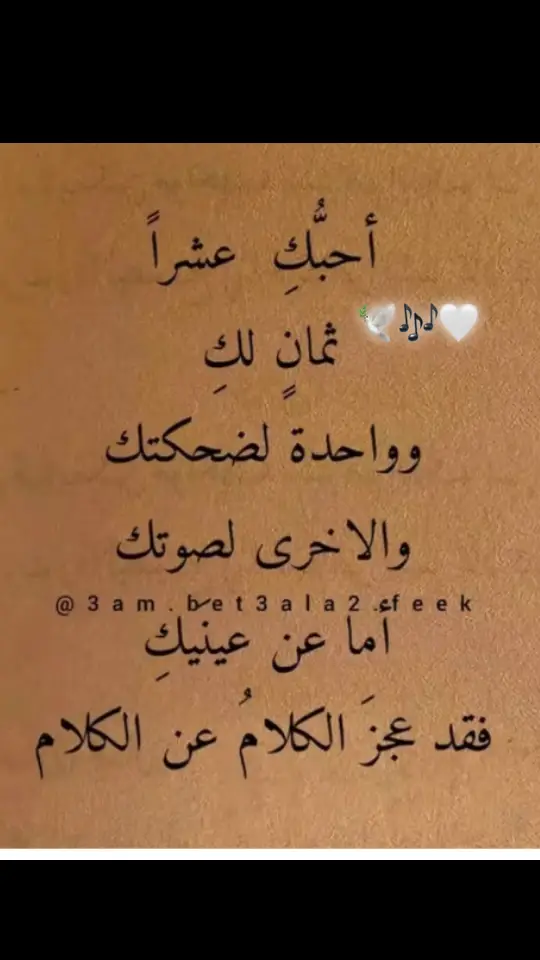 أحبُّكِ عشراً
ثمانٍ لكِ
وواحدة لضحكتك
والاخرى لصوتك
@3am.bet3ala2.feek
أما عن عينيكِ
فقد عجزَ الكلامُ عن الكلام